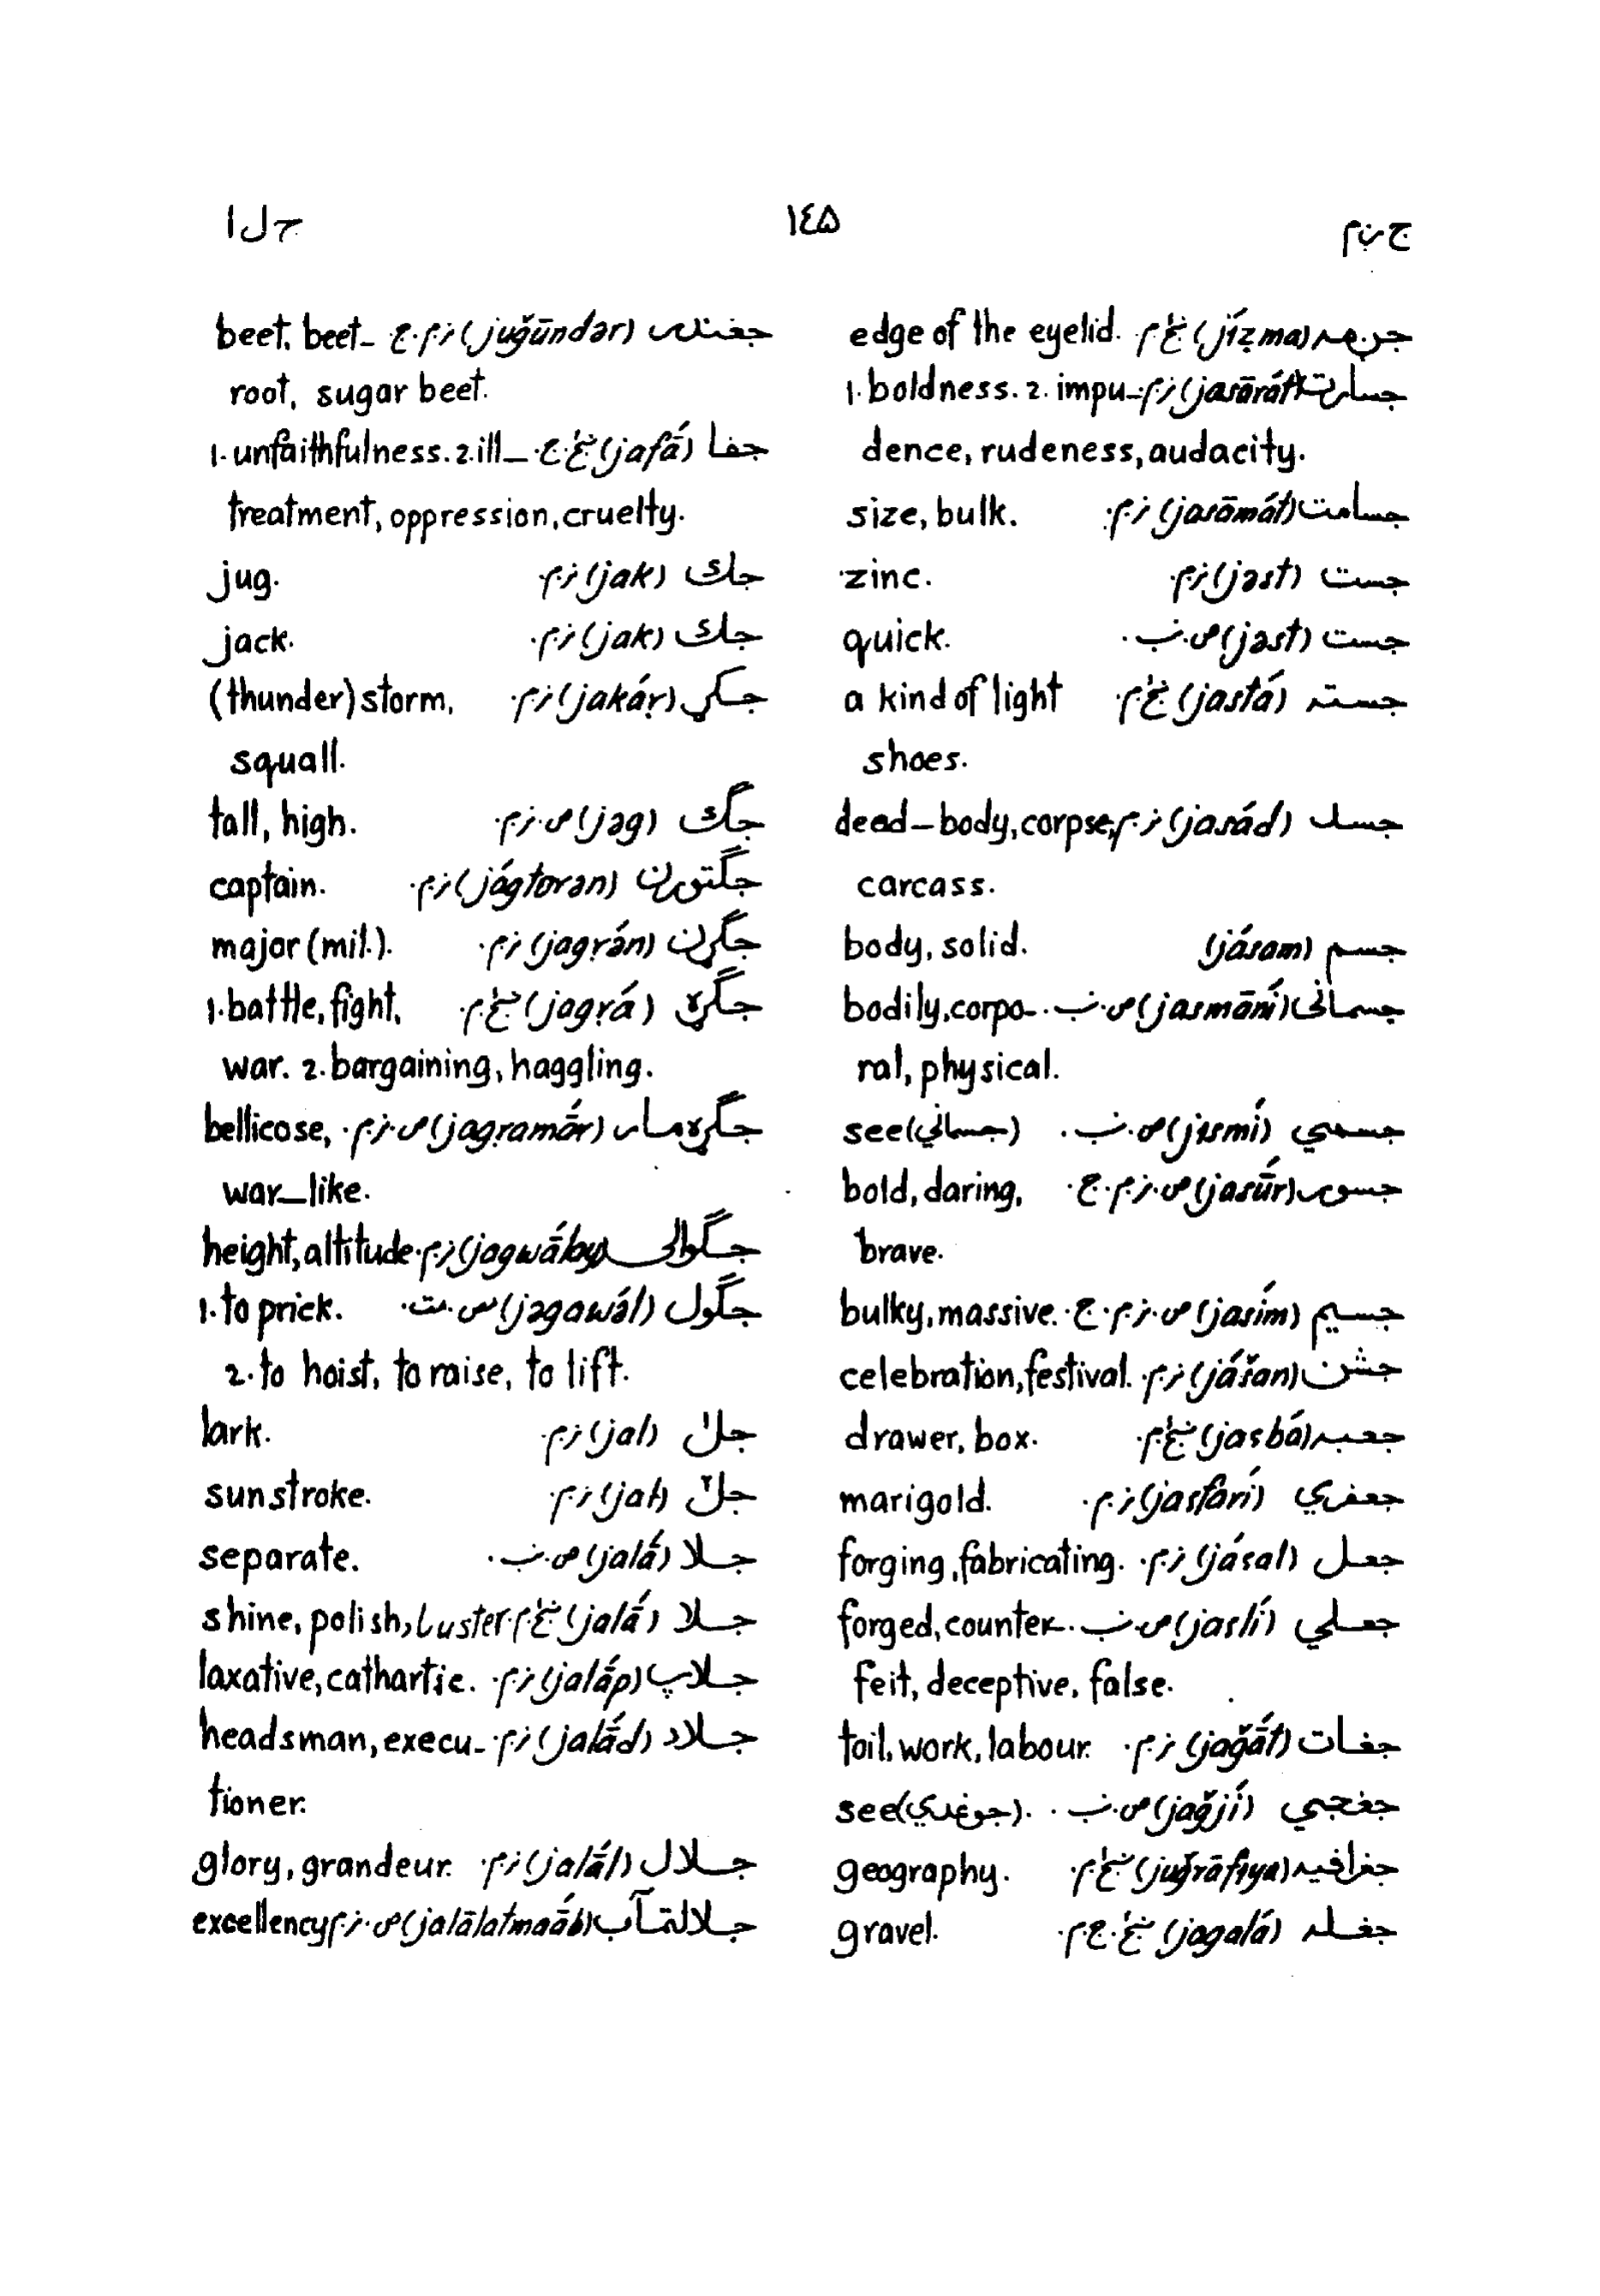 ج ل ا ۱٤۵ ج ږ م
جږمه (jíẓma) غ.ٔ.م edge of the eyelid.
جسارت (jasārát) ز.م. 1. boldness. 2. impu-
dence, rudeness, audacity.
جسامت (jasāmát) ز.م. size, bulk.
جست (jəst) ز.م. zinc.
جست (jəst) ص.ب. quick.
جسته (jastá) م. a kind of light
shoes.
جسد (jasád) ز.م. dead-body, corpse,
carcass.
جسم (jásam) body, solid.
جسمانى (jasmānı́) ص.ب. bodily, corpo-
ral, physical.
جسمي (jismí) ص.ب. see (جسماني)
جسور (jasū́r) ص.ز.م.ج. bold, daring,
brave.
جسيم (jasím) ص.ز.م.ج. bulky, massive.
جشن (jášan) ز.م. celebration, festival.
جعبه (jaʕbá) م. drawer, box.
جعفري (jaʕfarí) ز.م. marigold.
جعل (jáʕal) ز.م. forging, fabricating.
جعلي (jaʕlí) ص.ب. forged, counter-
feit, deceptive, false.
جغات (jaǧā́t) ز.م. toil, work, labour.
جغجي (jaǧjí) ص.ب. see (جوغدي).
جغرافيه (juǧrāfiya) م. geography.
جغله (jagalá) م. gravel.
جغندر (juǧūndər) ز.م.ج beet, beet-
root, sugar beet.
جفا (jafā́) ج. 1. unfaithfulness. 2. ill-
treatment, oppression, cruelty.
جك (jak) ز.م. jug.
جك (jak) ز.م. jack.
جكړ (jakáṛ) ز.م. (thunder) storm,
squall.
جگ (jəg) ص.ز.م. tall, high.
جگتورن (jágtorən) ز.م. captain.
جگړن (jagṛán) ز.م. major (mil.).
جگړه (jagṛá) م. 1. battle, fight,
war. 2. bargaining, haggling.
جگړه مار (jagṛamā́r) ص.ز.م. bellicose,
war-like.
جگوالى (jagwā́ləy) ز.م. height, altitude.
جگول (jəgawə́l) س.مت. 1. to prick.
2. to hoist, to raise, to lift.
جل (jal) ز.م. lark.
جل (jal) ز.م. sunstroke.
جلا (jalā́) ص.ب. separate.
جلا (jalā́) م. shine, polish, Luster
جلاپ (jalā́p) ز.م. laxative, cathartic.
جلاد (jalā́d) ز.م. headsman, execu-
tioner.
جلال (jalā́l) ز.م. glory, grandeur.
جلالتمآب (jalālatmaā́b) ص.ز.م excellency